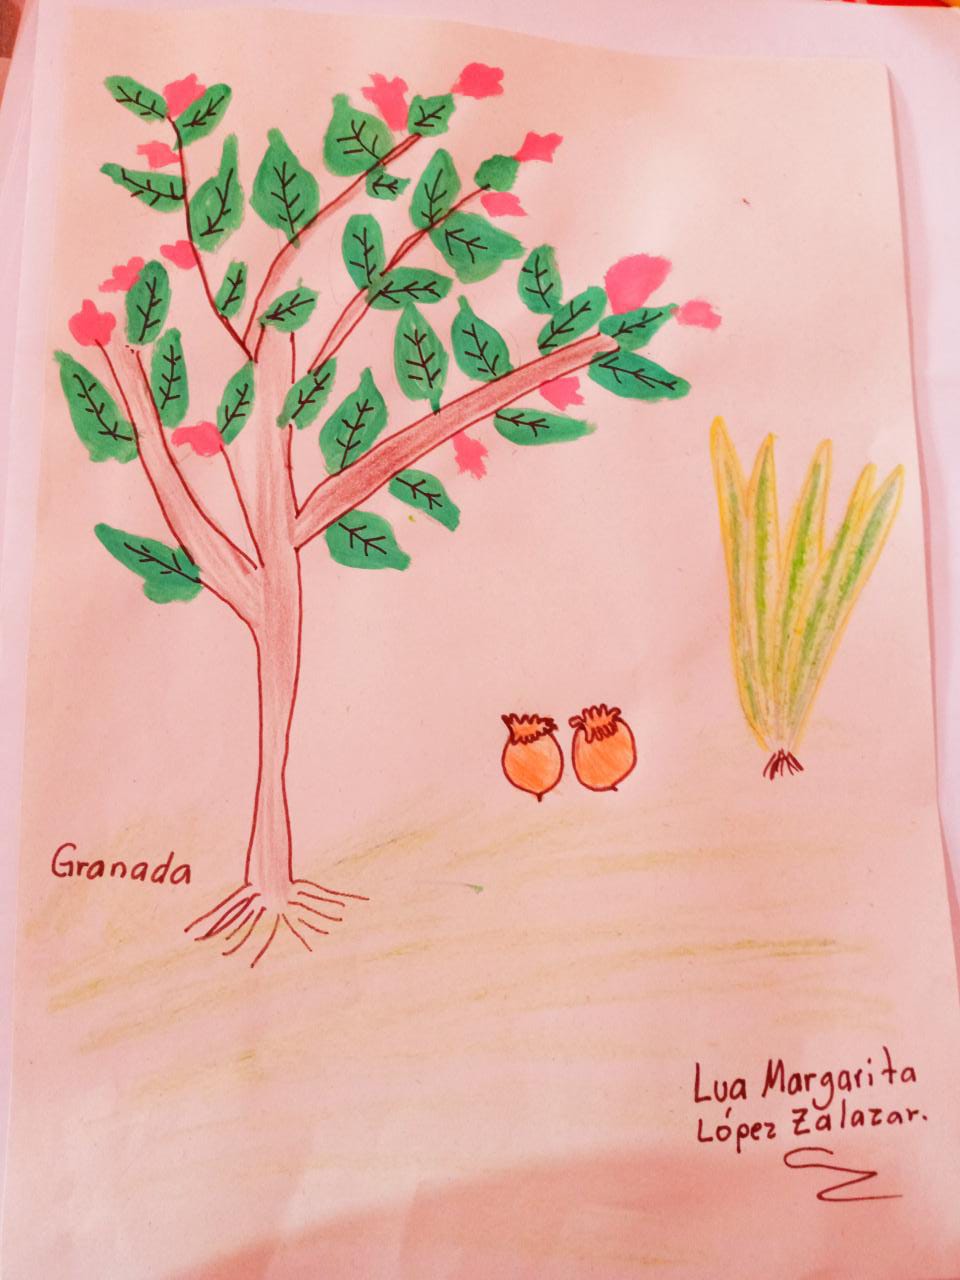 Granada
Lua Margarita
López Zalazar.